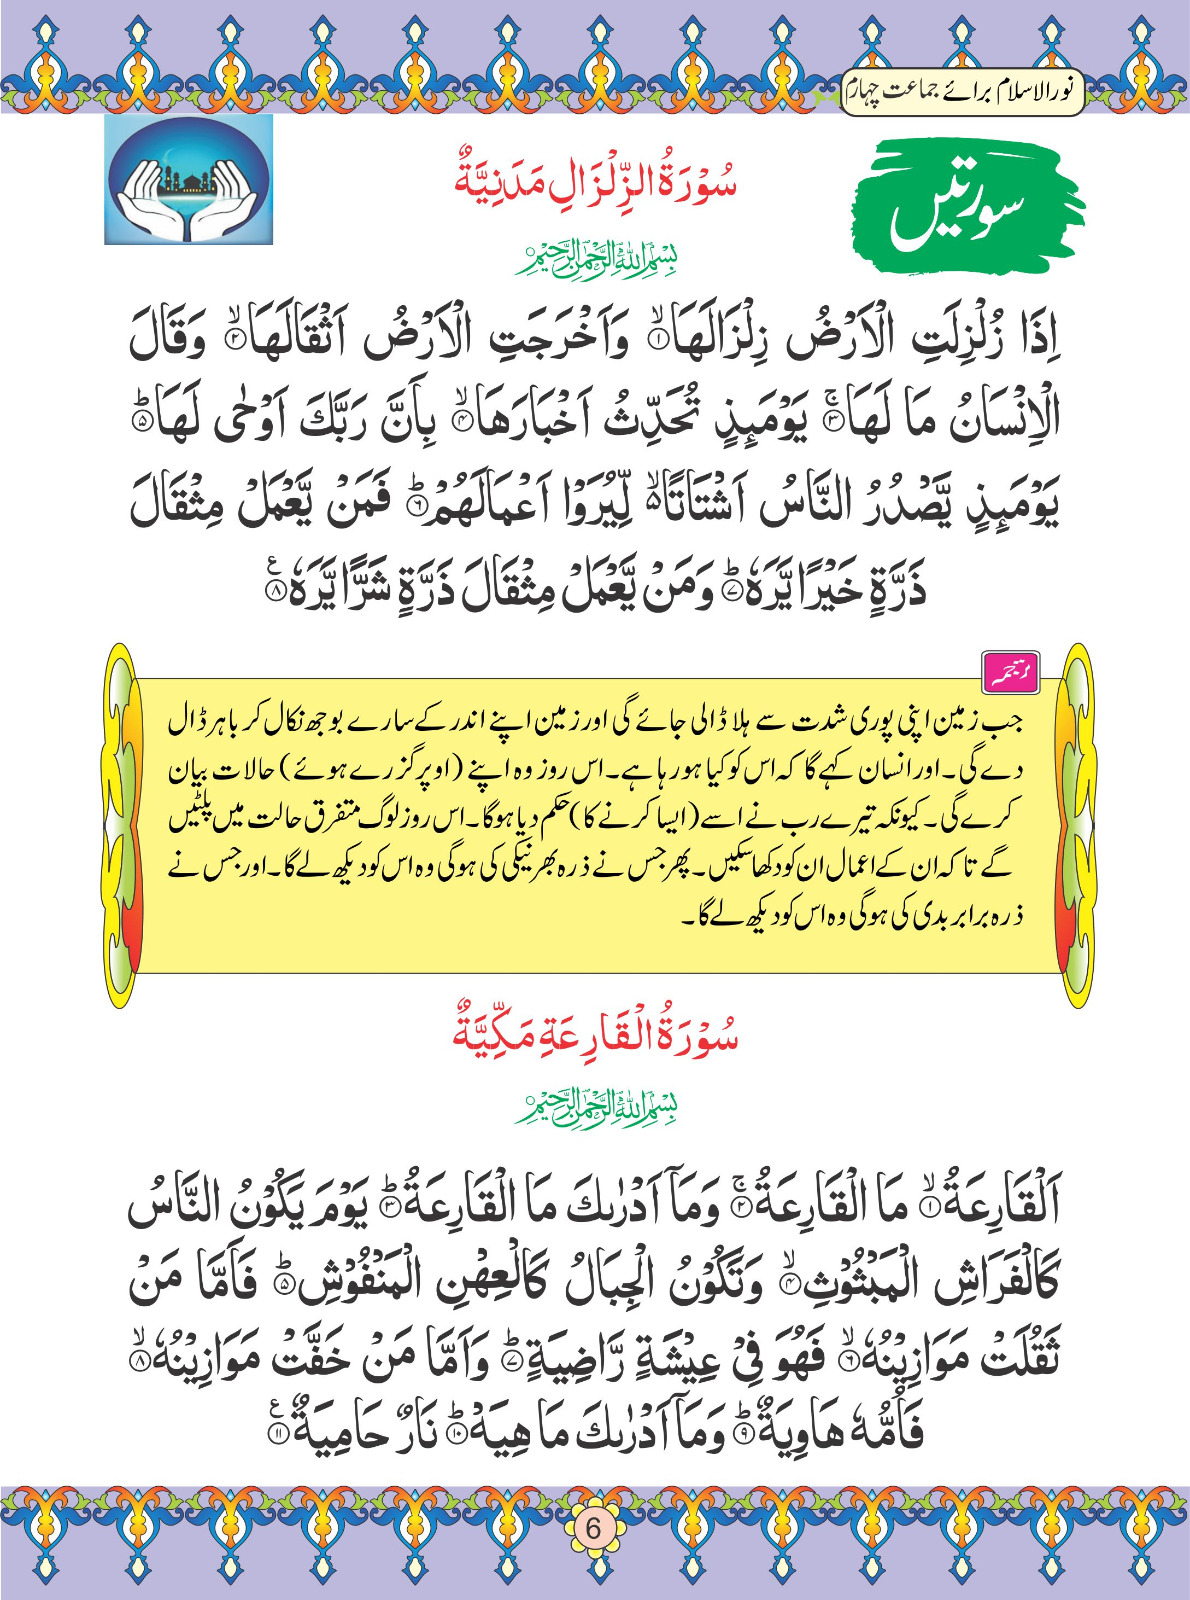 نورالاسلام برائے جماعت چہارم
سورتیں
سُوْرَةُ الزِّلْزَالِ مَدَنِيَّةٌ
بِسْمِ اللهِ الرَّحْمٰنِ الرَّحِيْمِ
اِذَا زُلْزِلَتِ الْاَرْضُ زِلْزَالَهَاۙ۝۱ وَاَخْرَجَتِ الْاَرْضُ اَثْقَالَهَاۙ۝۲ وَقَالَ
الْاِنْسَانُ مَا لَهَاۚ۝۳ يَوْمَئِذٍ تُحَدِّثُ اَخْبَارَهَاۙ۝۴ بِاَنَّ رَبَّكَ اَوْحٰى لَهَاؕ۝۵
يَوْمَئِذٍ يَّصْدُرُ النَّاسُ اَشْتَاتًا۵ۙ لِّيُرَوْا اَعْمَالَهُمْؕ۝۶ فَمَنْ يَّعْمَلْ مِثْقَالَ
ذَرَّةٍ خَيْرًا يَّرَهٗؕ۝۷ وَمَنْ يَّعْمَلْ مِثْقَالَ ذَرَّةٍ شَرًّا يَّرَهٗ۝۸ ع
ترجمہ
جب زمین اپنی پوری شدت سے ہلا ڈالی جائے گی اور زمین اپنے اندر کے سارے بوجھ نکال کر باہر ڈال
دے گی۔ اور انسان کہے گا کہ اس کو کیا ہو رہا ہے۔ اس روز وہ اپنے (اوپر گزرے ہوئے) حالات بیان
کرے گی۔ کیونکہ تیرے رب نے اسے (ایسا کرنے کا) حکم دیا ہوگا۔ اس روز لوگ متفرق حالت میں پلٹیں
گے تاکہ ان کے اعمال ان کو دکھا سکیں۔ پھر جس نے ذرہ بھر نیکی کی ہوگی وہ اس کو دیکھ لے گا۔ اور جس نے
ذرہ برابر بدی کی ہوگی وہ اس کو دیکھ لے گا۔
سُوْرَةُ الْقَارِعَةِ مَكِّيَّةٌ
بِسْمِ اللهِ الرَّحْمٰنِ الرَّحِيْمِ
اَلْقَارِعَةُۙ۝۱ مَا الْقَارِعَةُۚ۝۲ وَمَاۤ اَدْرٰىكَ مَا الْقَارِعَةُؕ۝۳ يَوْمَ يَكُوْنُ النَّاسُ
كَالْفَرَاشِ الْمَبْثُوْثِۙ۝۴ وَتَكُوْنُ الْجِبَالُ كَالْعِهْنِ الْمَنْفُوْشِؕ۝۵ فَاَمَّا مَنْ
ثَقُلَتْ مَوَازِيْنُهٗۙ۝۶ فَهُوَ فِيْ عِيْشَةٍ رَّاضِيَةٍؕ۝۷ وَاَمَّا مَنْ خَفَّتْ مَوَازِيْنُهٗۙ۝۸
فَاُمُّهٗ هَاوِيَةٌؕ۝۹ وَمَاۤ اَدْرٰىكَ مَا هِيَهْؕ۝۱۰ نَارٌ حَامِيَةٌ۝۱۱ ع
6